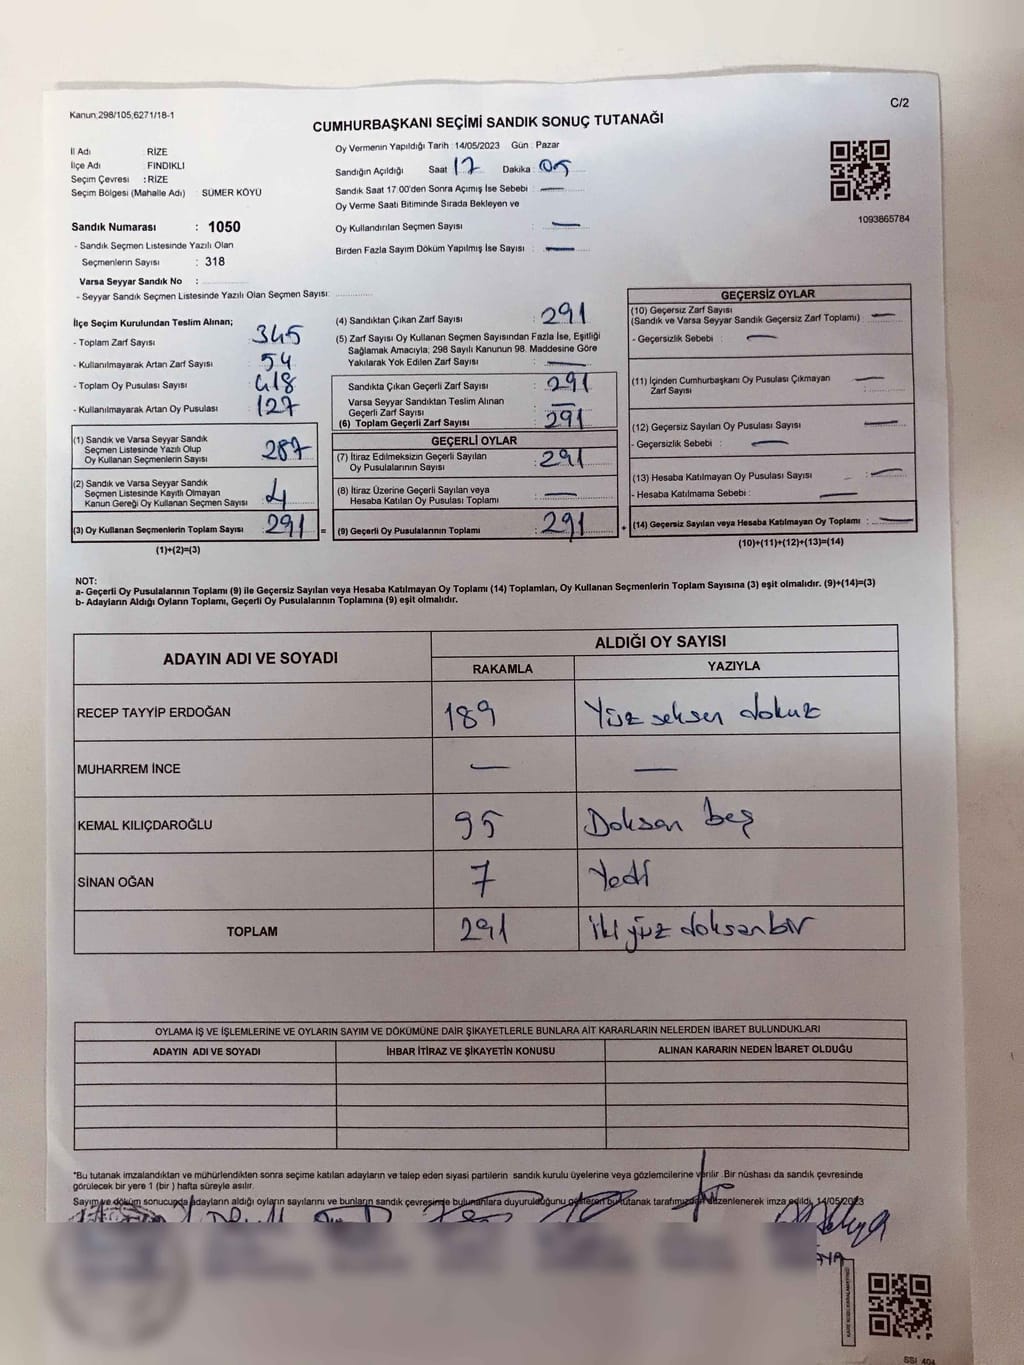 Kanun,298/105,6271/18-1
C/2
CUMHURBAŞKANI SEÇİMİ SANDIK SONUÇ TUTANAĞI
İl Adı : RİZE
İlçe Adı : FINDIKLI
Seçim Çevresi : RİZE
Seçim Bölgesi (Mahalle Adı) : SÜMER KÖYÜ
Sandık Numarası : 1050
- Sandık Seçmen Listesinde Yazılı Olan
Seçmenlerin Sayısı : 318
Varsa Seyyar Sandık No :
- Seyyar Sandık Seçmen Listesinde Yazılı Olan Seçmen Sayısı:
Oy Vermenin Yapıldığı Tarih : 14/05/2023 Gün : Pazar
Sandığın Açıldığı Saat 17 Dakika : 05
Sandık Saat 17.00'den Sonra Açımış İse Sebebi : —
Oy Verme Saati Bitiminde Sırada Bekleyen ve
Oy Kullandırılan Seçmen Sayısı : —
Birden Fazla Sayım Döküm Yapılmış İse Sayısı : —
1093865784
İlçe Seçim Kurulundan Teslim Alınan;
- Toplam Zarf Sayısı : 345
- Kullanılmayarak Artan Zarf Sayısı : 54
- Toplam Oy Pusulası Sayısı : 418
- Kullanılmayarak Artan Oy Pusulası : 127
(1) Sandık ve Varsa Seyyar Sandık
Seçmen Listesinde Yazılı Olup
Oy Kullanan Seçmenlerin Sayısı : 287
(2) Sandık ve Varsa Seyyar Sandık
Seçmen Listesinde Kayıtlı Olmayan
Kanun Gereği Oy Kullanan Seçmen Sayısı : 4
(3) Oy Kullanan Seçmenlerin Toplam Sayısı : 291 =
(1)+(2)=(3)
(4) Sandıktan Çıkan Zarf Sayısı : 291
(5) Zarf Sayısı Oy Kullanan Seçmen Sayısından Fazla İse, Eşitliği
Sağlamak Amacıyla; 298 Sayılı Kanunun 98. Maddesine Göre
Yakılarak Yok Edilen Zarf Sayısı : —
Sandıkta Çıkan Geçerli Zarf Sayısı : 291
Varsa Seyyar Sandıktan Teslim Alınan
Geçerli Zarf Sayısı : —
(6) Toplam Geçerli Zarf Sayısı : 291
GEÇERLİ OYLAR
(7) İtiraz Edilmeksizin Geçerli Sayılan
Oy Pusulalarının Sayısı : 291
(8) İtiraz Üzerine Geçerli Sayılan veya
Hesaba Katılan Oy Pusulası Toplamı : —
(9) Geçerli Oy Pusulalarının Toplamı : 291 +
GEÇERSİZ OYLAR
(10) Geçersiz Zarf Sayısı : —
(Sandık ve Varsa Seyyar Sandık Geçersiz Zarf Toplamı)
- Geçersizlik Sebebi : —
(11) İçinden Cumhurbaşkanı Oy Pusulası Çıkmayan : —
Zarf Sayısı
(12) Geçersiz Sayılan Oy Pusulası Sayısı : —
- Geçersizlik Sebebi : —
(13) Hesaba Katılmayan Oy Pusulası Sayısı : —
- Hesaba Katılmama Sebebi : —
(14) Geçersiz Sayılan veya Hesaba Katılmayan Oy Toplamı : —
(10)+(11)+(12)+(13)=(14)
NOT:
a- Geçerli Oy Pusulalarının Toplamı (9) ile Geçersiz Sayılan veya Hesaba Katılmayan Oy Toplamı (14) Toplamları, Oy Kullanan Seçmenlerin Toplam Sayısına (3) eşit olmalıdır. (9)+(14)=(3)
b- Adayların Aldığı Oyların Toplamı, Geçerli Oy Pusulalarının Toplamına (9) eşit olmalıdır.
ADAYIN ADI VE SOYADI
ALDIĞI OY SAYISI
RAKAMLA YAZIYLA
RECEP TAYYİP ERDOĞAN 189 Yüz seksen dokuz
MUHARREM İNCE — —
KEMAL KILIÇDAROĞLU 95 Doksan beş
SİNAN OĞAN 7 Yedi
TOPLAM 291 iki yüz doksan bir
OYLAMA İŞ VE İŞLEMLERİNE VE OYLARIN SAYIM VE DÖKÜMÜNE DAİR ŞİKAYETLERLE BUNLARA AİT KARARLARIN NELERDEN İBARET BULUNDUKLARI
ADAYIN ADI VE SOYADI İHBAR İTİRAZ VE ŞİKAYETİN KONUSU ALINAN KARARIN NEDEN İBARET OLDUĞU
*Bu tutanak imzalandıktan ve mühürlendikten sonra seçime katılan adayların ve talep eden siyasi partilerin sandık kurulu üyelerine veya gözlemcilerine verilir. Bir nüshası da sandık çevresinde
görülecek bir yere 1 (bir ) hafta süreyle asılır.
Sayım ve döküm sonucunda adayların aldığı oyların sayılarını ve bunların sandık çevresinde bulunanlara duyurulduğunu gösteren bu tutanak tarafımızdan düzenlenerek imza edildi. 14/05/2023